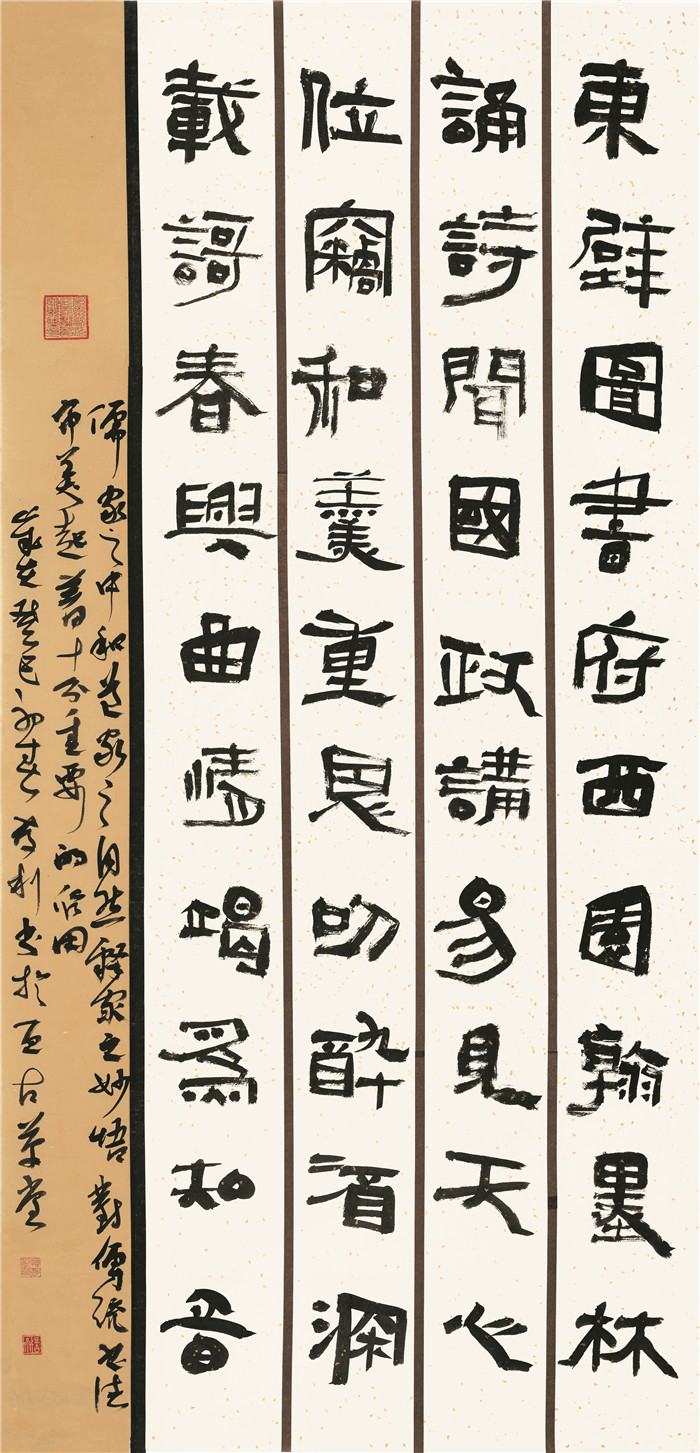 東壁圖書府西園翰墨林
誦詩聞國政講易見天心
位竊和羹重恩叨醉酒深
載謌春興曲情竭爲知音
儒家之中和道家之自然釋家之妙悟對傳統書法
審美起着十分重要的作用
歲在癸巳初春利書於古草堂